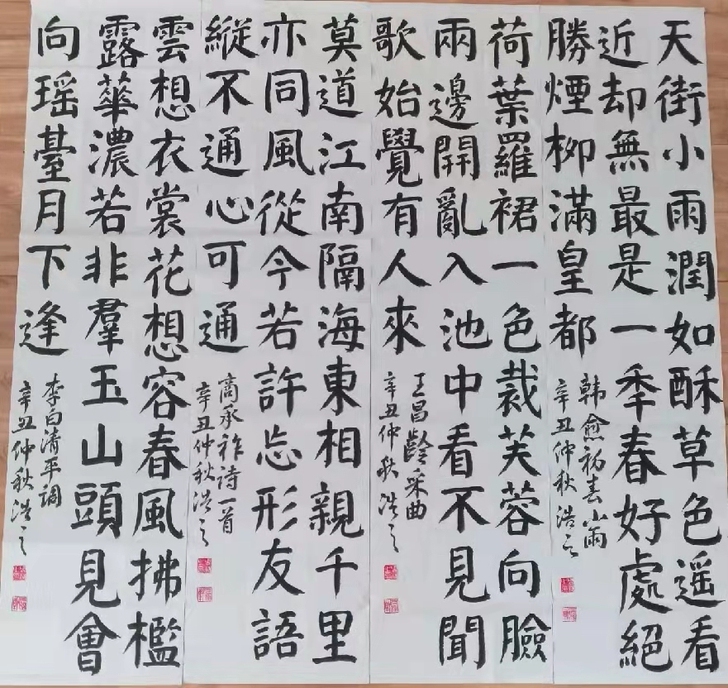 天街小雨潤如酥草色遥看
近却無最是一秊春好處絕
勝煙柳滿皇都
韓愈初春小雨
辛丑仲秋浩之
荷葉羅裙一色裁芙蓉向臉
兩邊開亂入池中看不見聞
歌始覺有人來
王昌齡采曲
辛丑仲秋浩之
莫道江南隔海東相親千里
亦同風從今若許忘形友語
縱不通心可通
商承祚詩一首
辛丑仲秋浩之
雲想衣裳花想容春風拂檻
露華濃若非羣玉山頭見會
向瑶臺月下逢
李白清平調
辛丑仲秋浩之